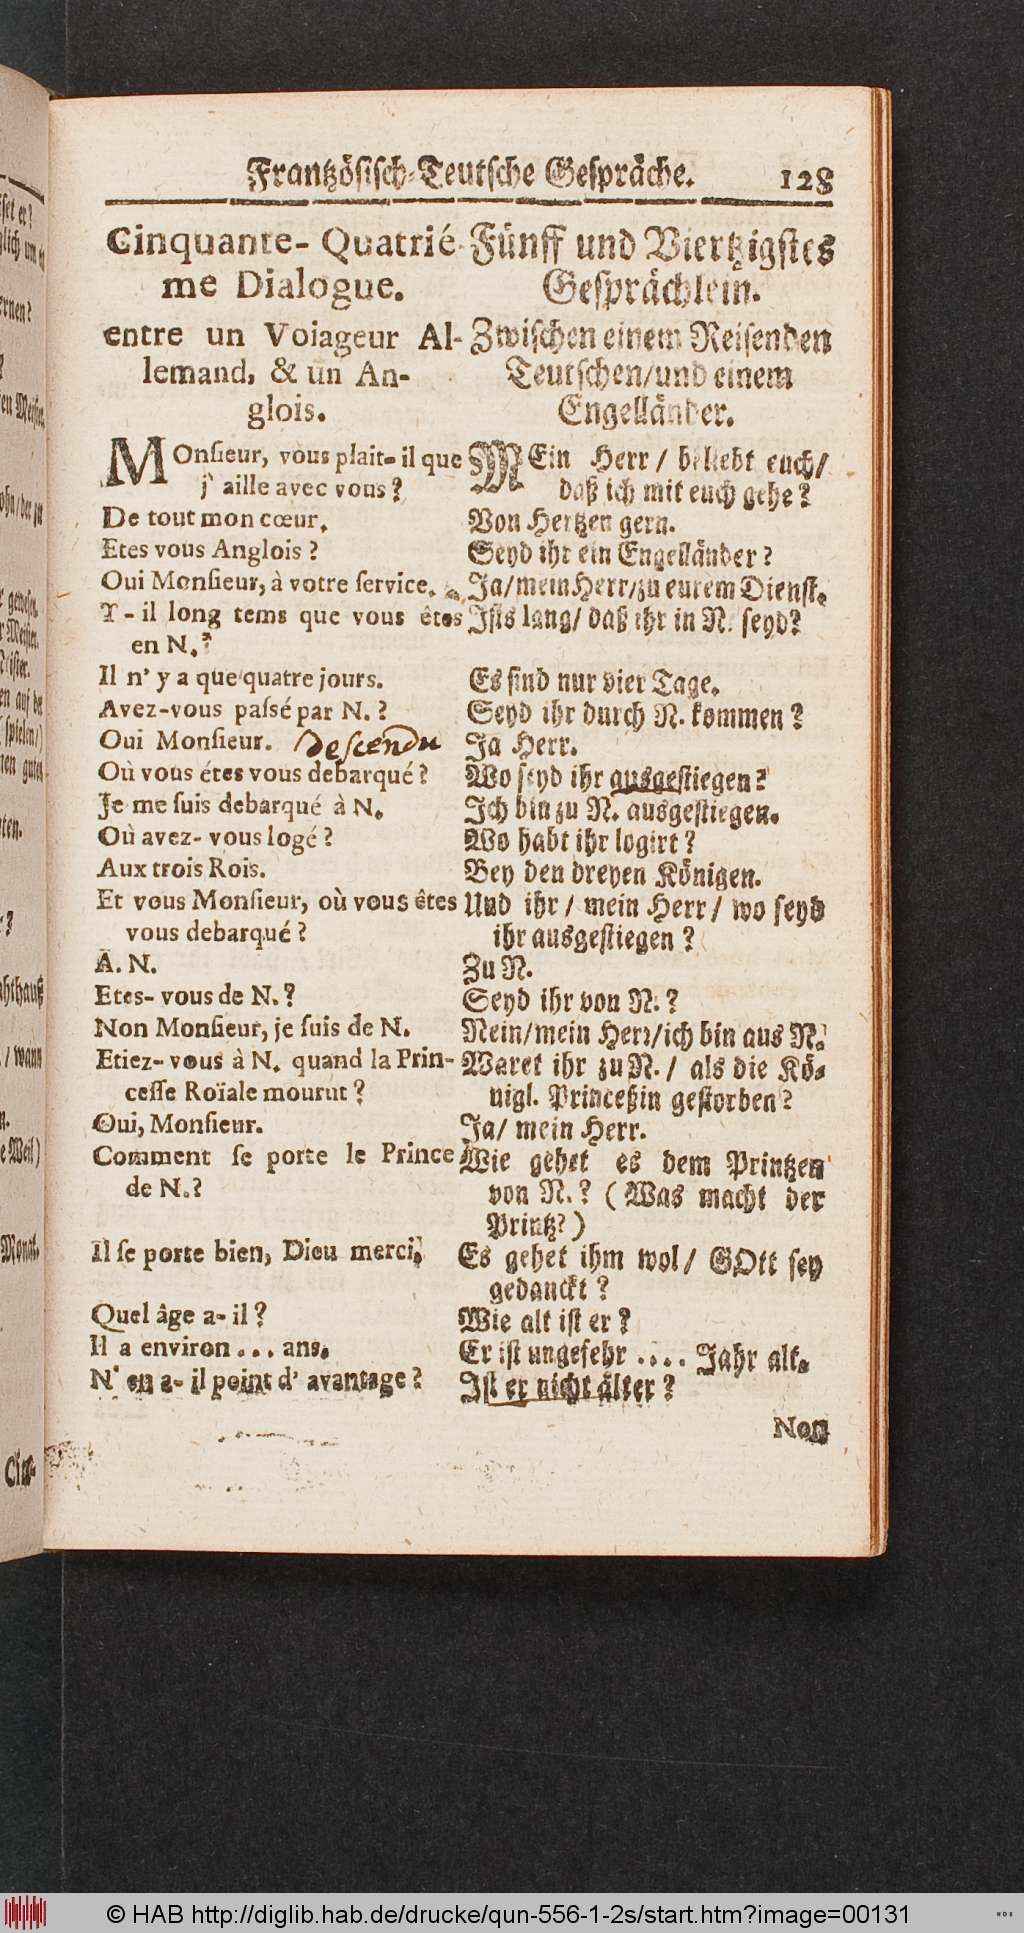 Frantzösisch-Teutsche Gespräche. 128
Cinquante- Quatrié-
me Dialogue.
entre un Voiageur Al-
lemand, & un An-
glois.
MOnſieur, vous plait- il que
j' aille avec vous?
De tout mon cœur.
Etes vous Anglois?
Oui Monſieur, à votre ſervice.
Y - il long tems que vous êtes
en N.?
Il n' y a que quatre jours.
Avez-vous paſsé par N.?
Oui Monſieur. descendu
Où vous étes vous debarqué?
Je me ſuis debarqué à N.
Où avez- vous logé?
Aux trois Rois.
Et vous Monſieur, où vous êtes
vous debarqué?
A. N.
Etes- vous de N.?
Non Monſieur, je ſuis de N.
Etiez- vous à N. quand la Prin-
ceſſe Roïale mourut?
Oui, Monſieur.
Comment ſe porte le Prince
de N.?
Il ſe porte bien, Dieu merci.
Quel âge a- il?
Il a environ... ans.
N' en a- il point d' avantage?
Fünff und Viertzigſtes
Geſprächlein.
Zwiſchen einem Reiſenden
Teutſchen/und einem
Engelländer.
MEin Herr / beliebt euch/
daß ich mit euch gehe?
Von Hertzen gern.
Seyd ihr ein Engelländer?
Ja/mein Herr/zu eurem Dienſt.
Iſts lang/ daß ihr in N. ſeyd?
Es ſind nur vier Tage.
Seyd ihr durch N. kommen?
Ja Herr.
Wo ſeyd ihr ausgeſtiegen?
Ich bin zu N. ausgeſtiegen.
Wo habt ihr logirt?
Bey den dreyen Königen.
Und ihr / mein Herr / wo ſeyd
ihr ausgeſtiegen?
Zu N.
Seyd ihr von N.?
Nein/mein Herr/ich bin aus N.
Waret ihr zu N. / als die Kö-
nigl. Princeßin geſtorben?
Ja/ mein Herr.
Wie gehet es dem Printzen
von N.? (Was macht der
Printz?)
Es gehet ihm wol / GOtt ſey
gedanckt?
Wie alt iſt er?
Er iſt ungefehr .... Jahr alt.
Iſt er nicht älter?
Non
© HAB http://diglib.hab.de/drucke/qun-556-1-2s/start.htm?image=00131